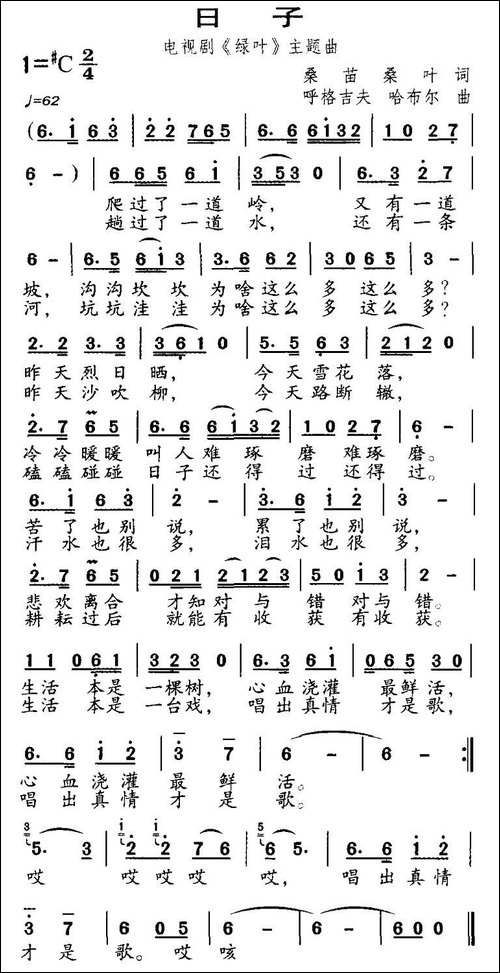 日 子
电视剧《绿叶》主题曲
1=#C 2/4
桑苗桑叶 词
♩=62
呼格吉夫 哈布尔 曲
(6. 1 6 3 | 2 2 765 | 6. 6 6132 | 1 0 2 7 |
6 - ) | 6 65 6 1 | 353 0 | 6. 3 2 7 |
爬过了一道 岭, 又有一道
趟过了一道 水, 还有一条
6 - | 6. 5 61 3 | 3. 6 6 2 | 3 0 6 5 | 3 - |
坡, 沟沟坎坎 为啥这么 多 这么 多?
河, 坑坑洼洼 为啥这么 多 这么 多?
2. 2 3. 3 | 3 6 1 0 | 5. 5 6 3 | 2 1 2 0 |
昨天烈日 晒, 今天雪花 落,
昨天沙吹 柳, 今天路断 辙,
2. 7 6 5 | 6. 6 6132 | 1 0 2 7 | 6 - |
冷冷暖暖 叫人难琢 磨 难琢 磨。
磕磕碰碰 日子还得 过 还得 过。
6. 1 6 3 | 2 - | 3. 6 1 2 | 3 - |
苦了也别 说, 累了也别 说,
汗水也很 多, 泪水也很 多,
2. 7 6 5 | 0 2 1 2 1 2 3 | 5 0 1 3 | 2 - |
悲欢离合 才知对与 错 对与 错。
耕耘过后 就能有收 获 有收 获。
1 1 0 6 1 | 3 2 3 0 | 6. 3 6 1 | 0 6 5 3 0 |
生活 本是 一棵树, 心血浇灌 最鲜活,
生活 本是 一台戏, 唱出真情 才是歌,
6. 6 1 2 | 3 7 | 6 - | 6 - :||
心血浇灌 最鲜 活。
唱出真情 才是 歌。
3 5. 3 | 1 2 1 2 7 6 | 5 6 5. | 6. 6 1 2 |
哎 哎哎哎 哎, 唱出真情
3 7 | 6 0 5 | 6 - | 6 - | 6 0 0 ||
才是 歌。哎 咳